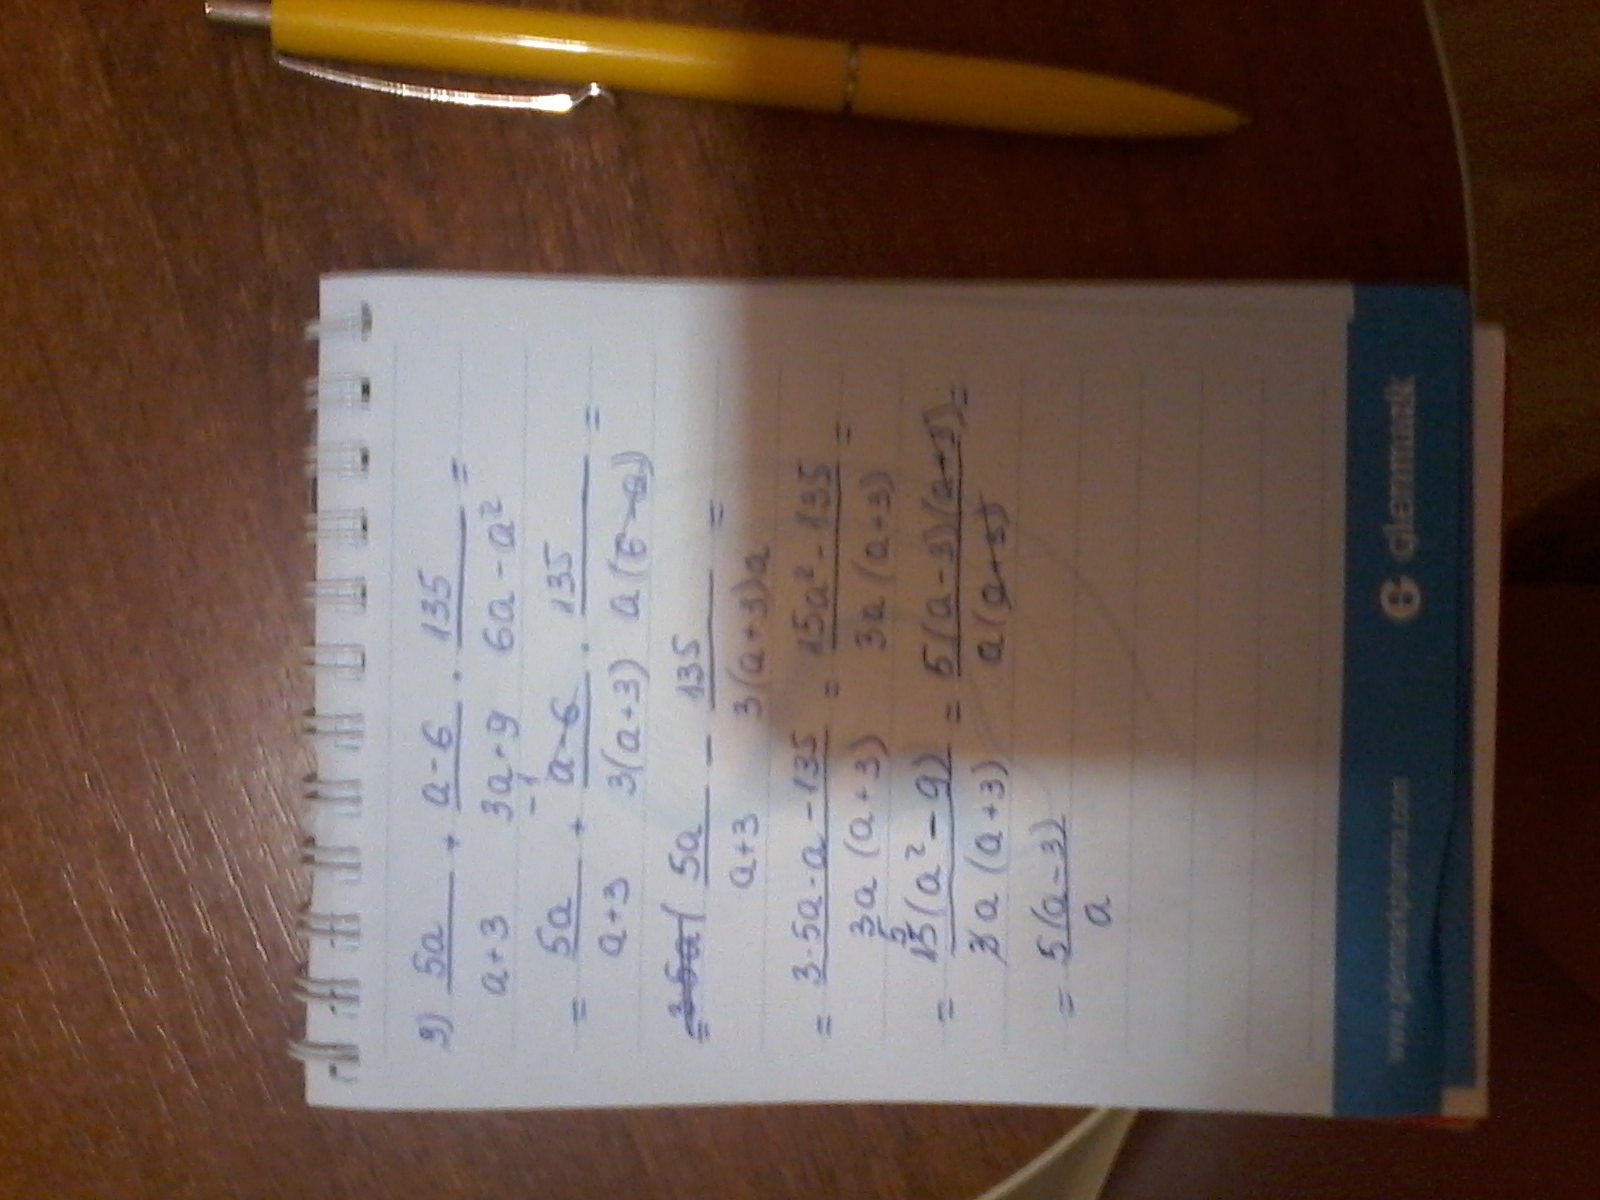 9) 5a/a+3 + a-6/3a+9 · 135/6a-a² =
= 5a/a+3 + a-6 -1/3(a+3) · 135/a(6-a) =
5a/a+3 - 135/3(a+3)a =
= 3·5a·a-135/3a(a+3) = 15a²-135/3a(a+3) =
= 15 5(a²-9)/3a(a+3) = 5(a-3)(a+3)/a(a+3) =
= 5(a-3)/a
www.glenmarkpharma.com glenmark